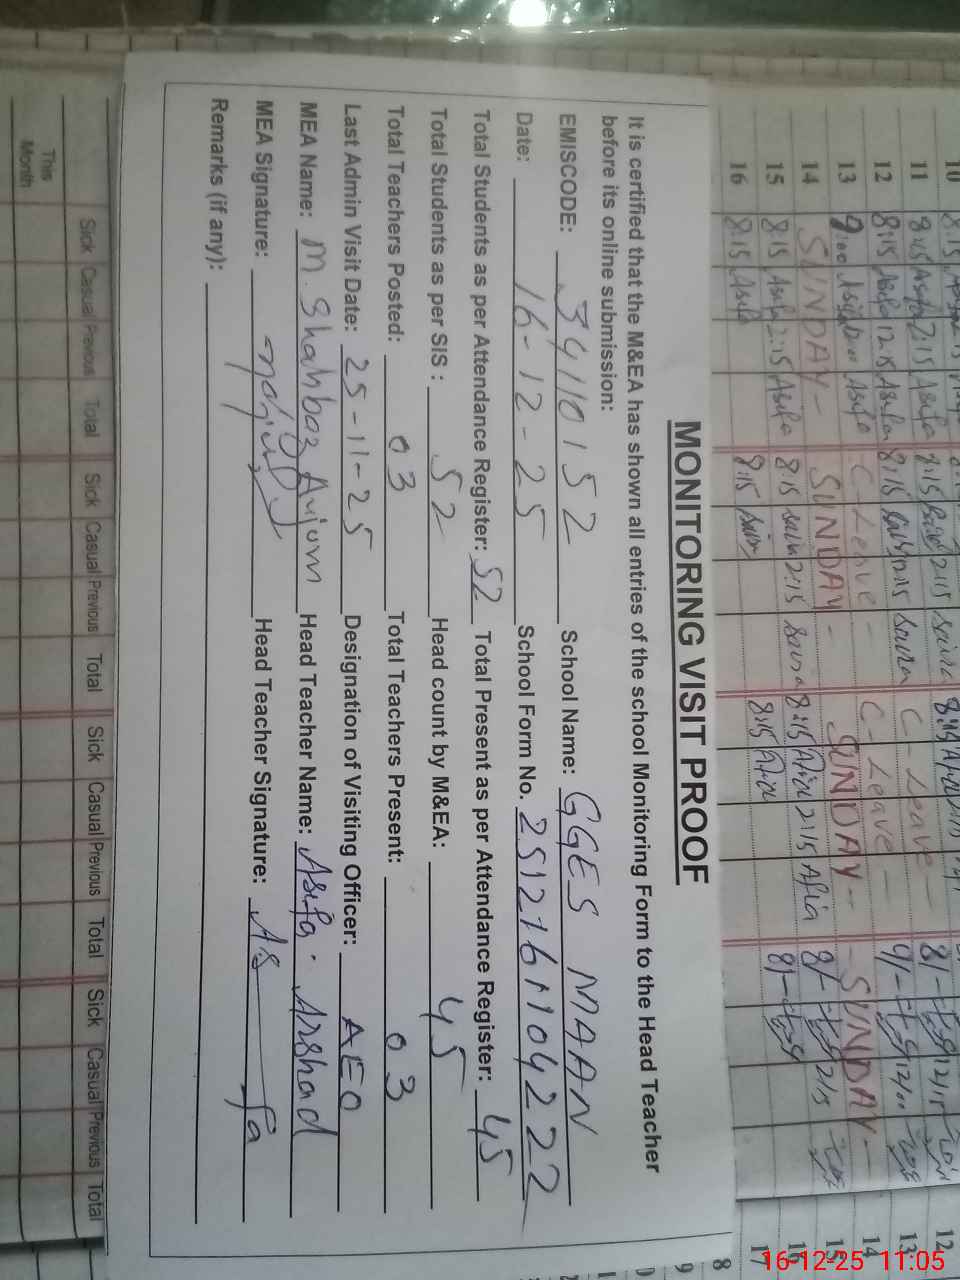 MONITORING VISIT PROOF
It is certified that the M&EA has shown all entries of the school Monitoring Form to the Head Teacher
before its online submission:
EMISCODE: 34110152 School Name: GGES MAAN
Date: 16-12-25 School Form No. 2512161104222
Total Students as per Attendance Register: 52 Total Present as per Attendance Register: 45
Total Students as per SIS : 52 Head count by M&EA: 45
Total Teachers Posted: 03 Total Teachers Present: 03
Last Admin Visit Date: 25-11-25 Designation of Visiting Officer: AEO
MEA Name: M. Shahbaz Anjum Head Teacher Name: Asifa. Arshad
MEA Signature: Head Teacher Signature: Asifa
Remarks (if any):
10 8:15
11 8:15 Asifa 2:15 Asifa 8:15 2:15 Saira
12 8:15 Asifa 12:15 Asifa 8:15 12:15 Saira C-Leave-
13 9:00 Asifa Asifa C-Leave- C-Leave-
14 SUNDAY- SUNDAY- SUNDAY-- SUNDAY-
15 8:15 Asifa 2:15 Asifa 8:15 Saira 2:15 Saira 8:15 Afia 2:15 Afia
16 8:15 Asifa 8:15 Saira 8:15 Afia
8
9
12
13
14
15
16
17
This
Month
Sick Casual Previous Total Sick Casual Previous Total Sick Casual Previous Total Sick Casual Previous Total
16-12-25 11:05